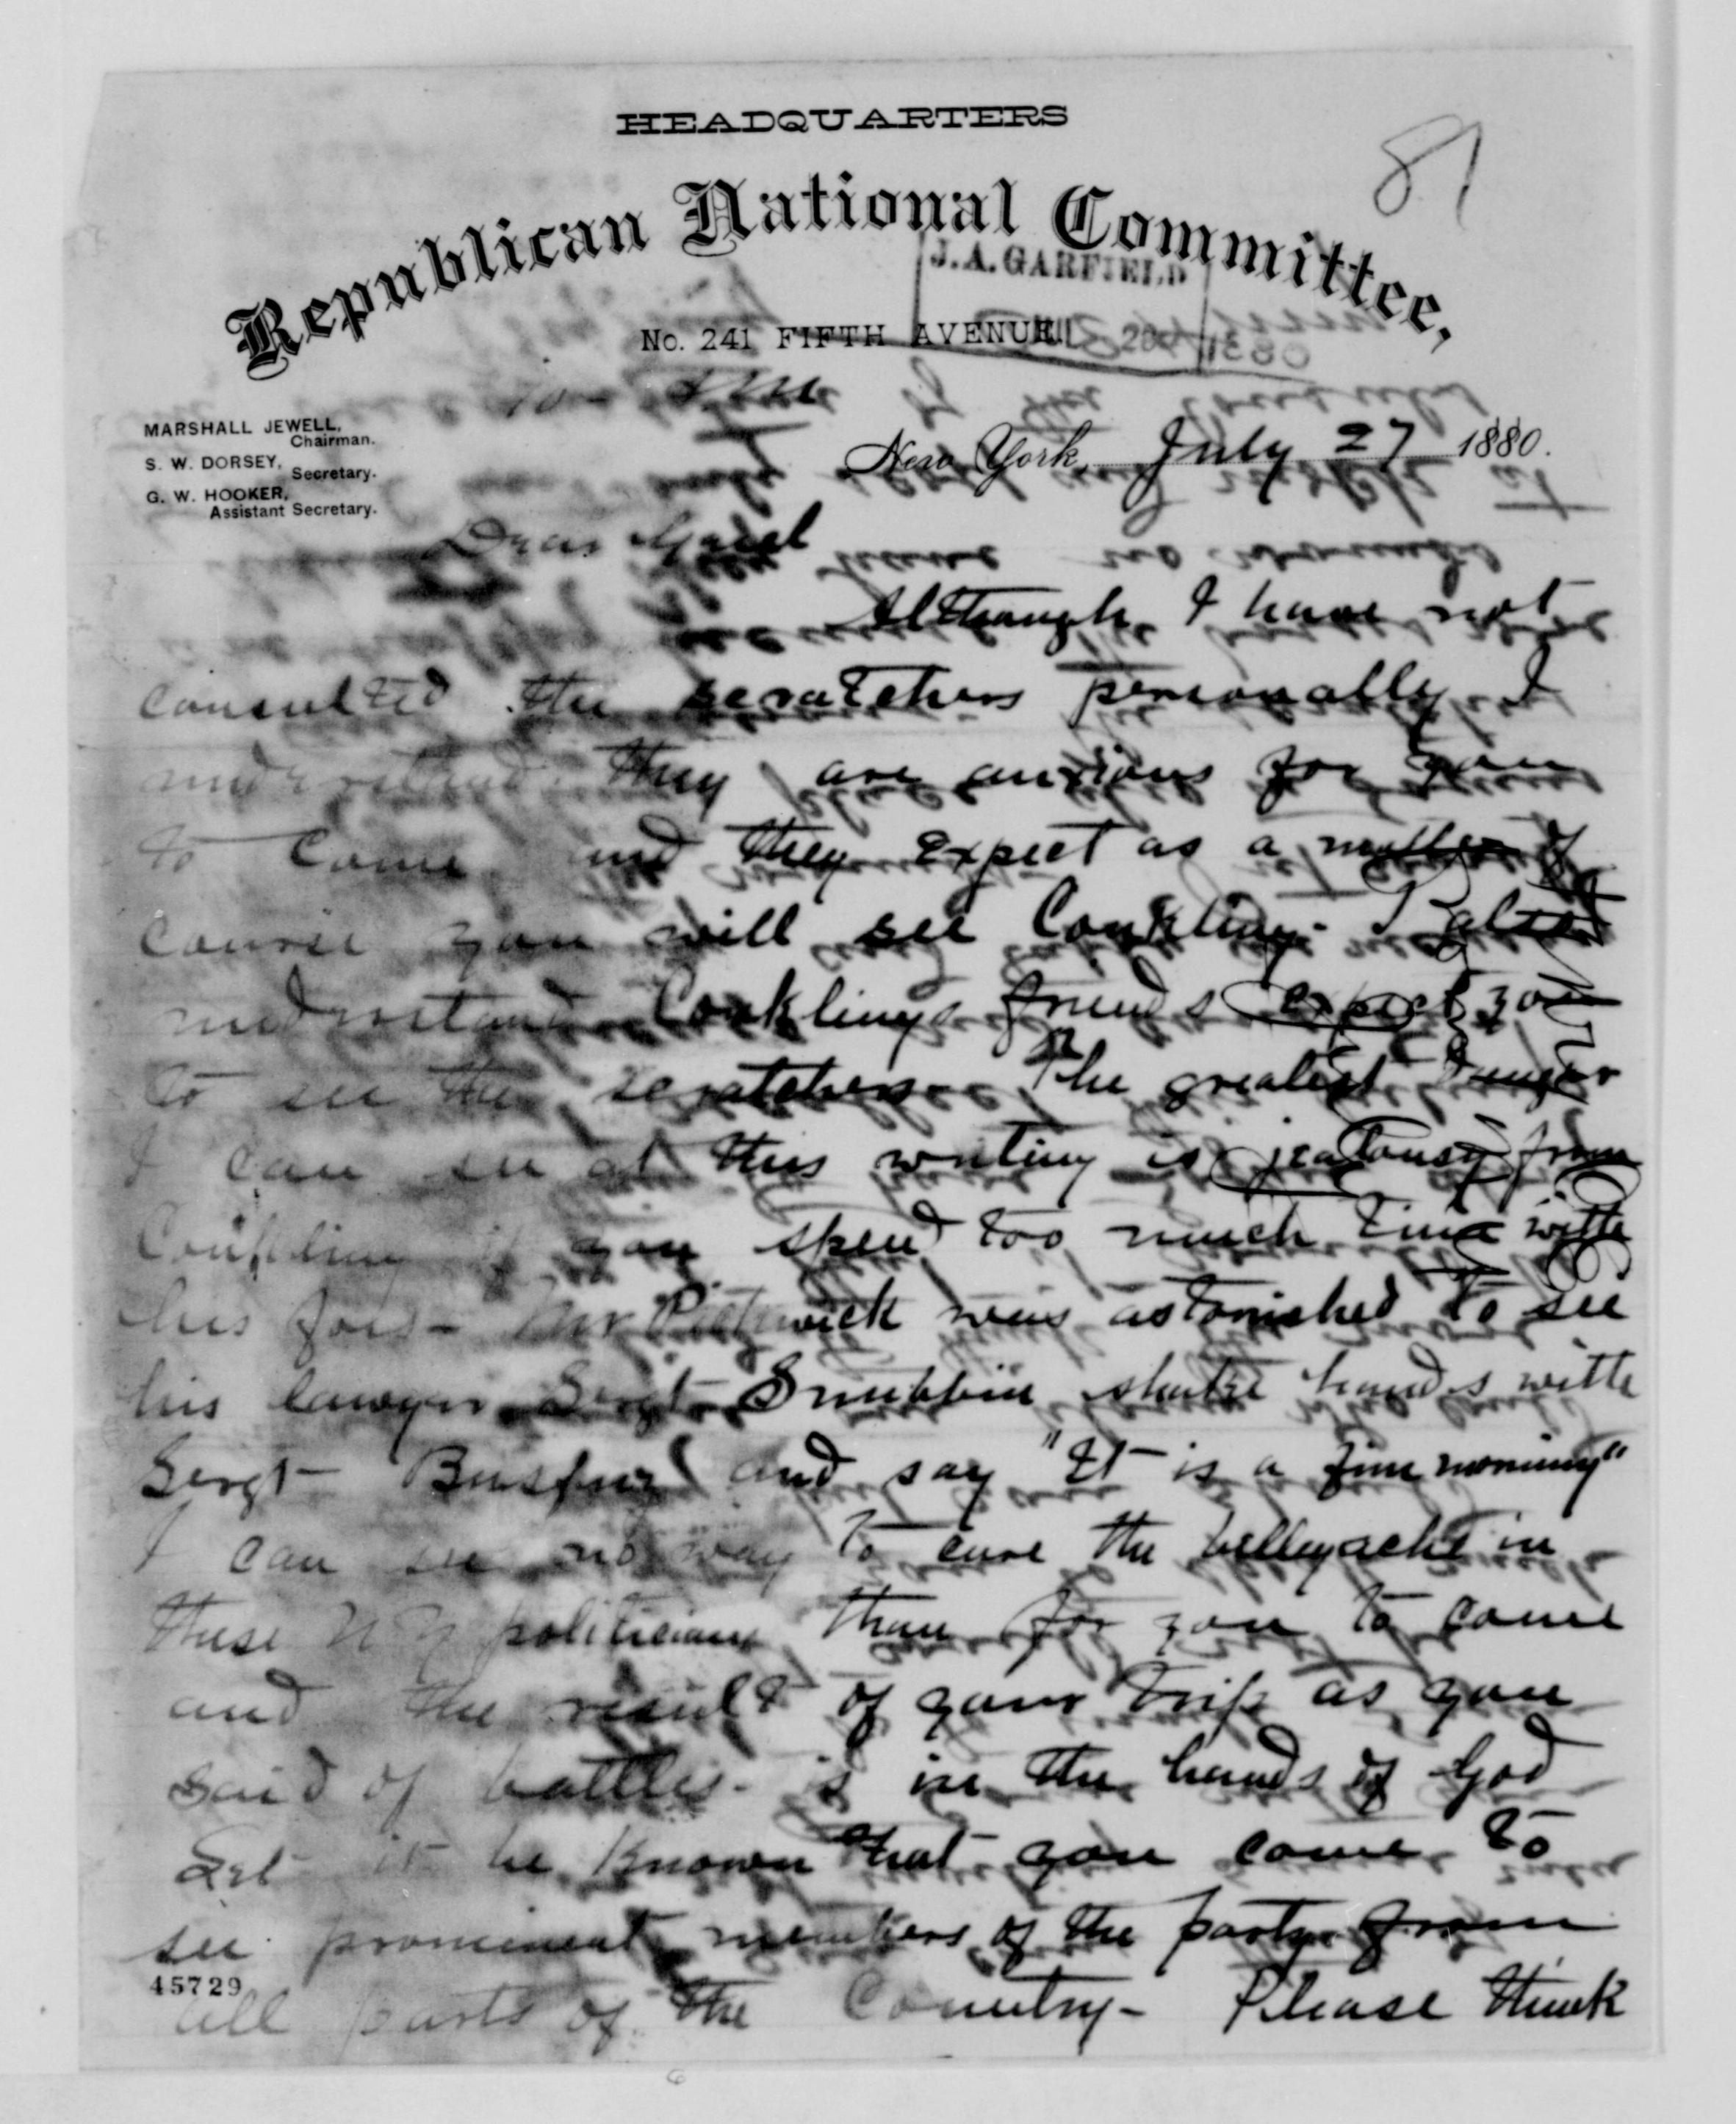 HEADQUARTERS
81
Republican National Committee,
J. A. GARFIELD
No. 241 FIFTH AVENUE
1880
MARSHALL JEWELL,
Chairman.
New York, July 27 1880.
S. W. DORSEY,
Secretary.
G. W. HOOKER,
Assistant Secretary.
Dear Genl
Although I have not
consulted the scratchers personally I
understand they are anxious for you
to come and they expect as a matter of
course you will see Conkling. I also
understand Conklings friends expect you
to see the scratchers. The greatest danger
I can see at this writing is jealousy from
Conkling if you spend too much time with
his foes - Mr Pickwick was astonished to see
his lawyer Sergt Snubbin shake hands with
Sergt Busfuz and say "It is a fine morning"
I can see no way to cure the bellyache in
these N Y politicians than for you to come
and the result of your trip as you
said of battles - is in the hands of God
Let it be known that you come to
see prominent members of the party from
45729
all parts of the Country - Please think